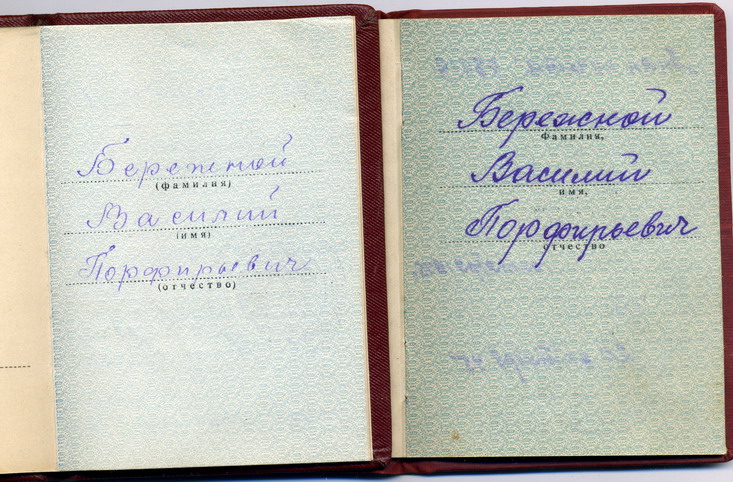 Бережной
(фамилия)
Василий
(имя)
Порфирьевич
(отчество)
Бережной
Фамилия,
Василий
имя,
Порфирьевич
отчество